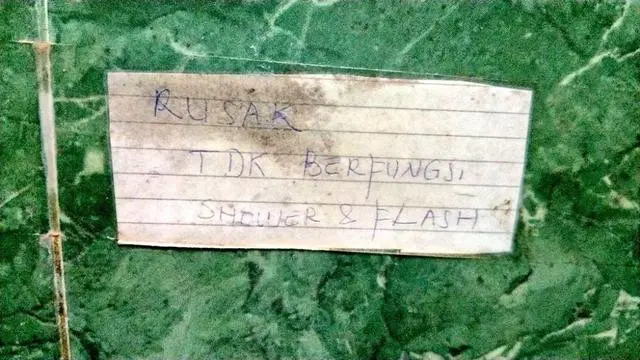 RUSAK
TDK BERFUNGSI
SHOWER & FLASH